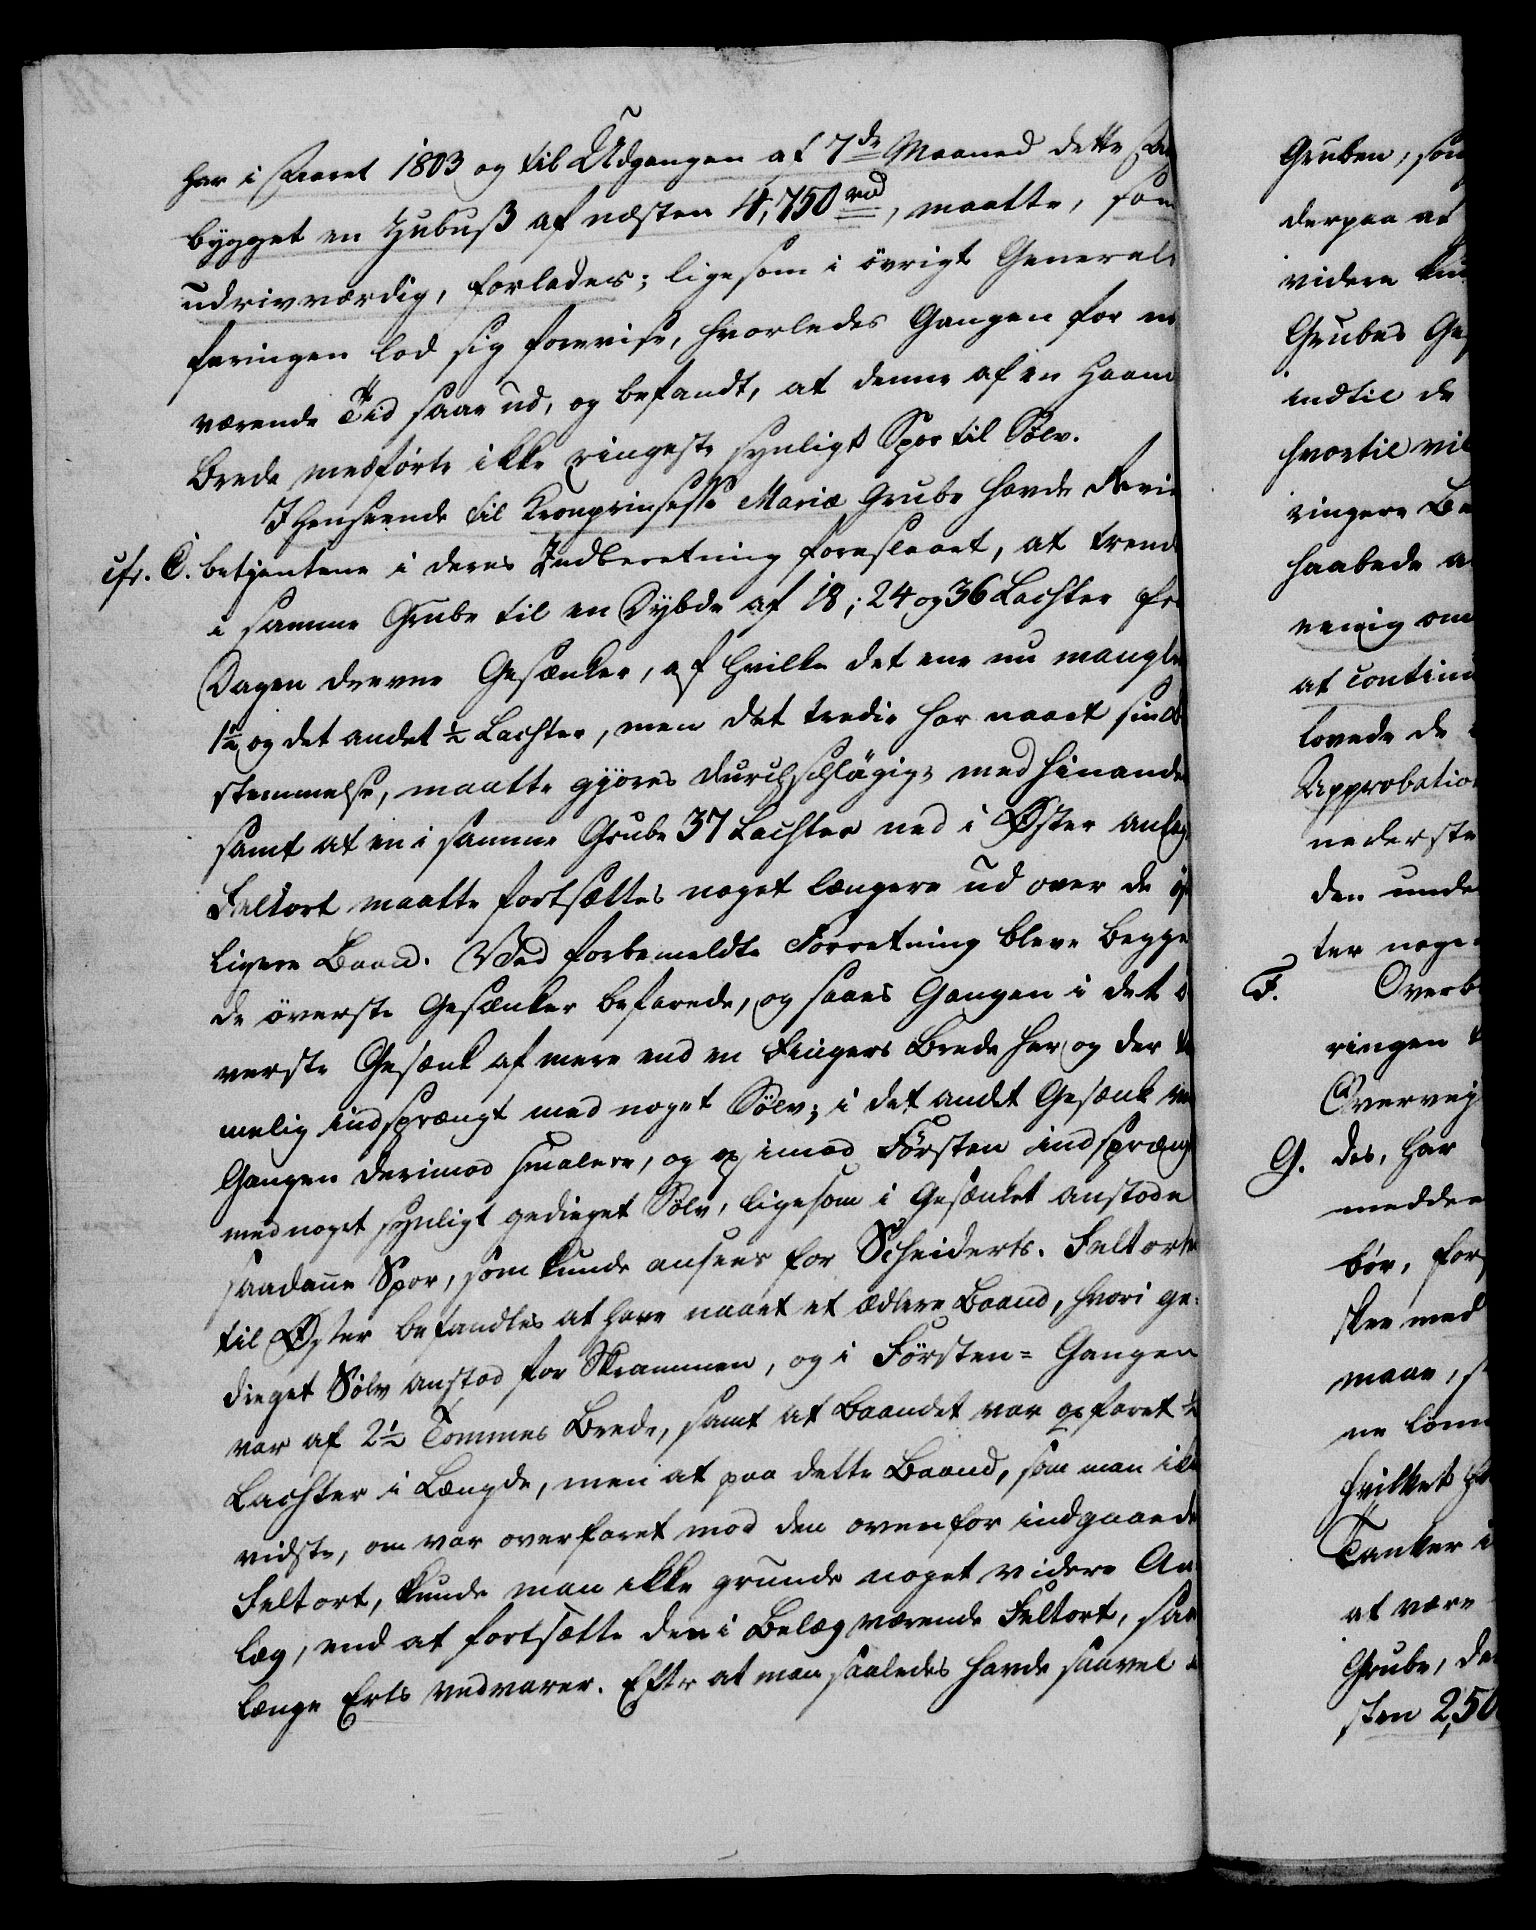 har i Aaret 1803 og til Udgangen af 7de Maaned dette Aar
bygget en Zubuß af næsten 4,750 rd, maatte, som
udrivværdig, forlades; ligesom i øvrigt General-
faringen lod sig forevise, hvorledes Gangen for nær
værende Tid saae ud, og befandt, at denne af en Haands
Brede medførte ikke ringeste synligt Spor til Sølv.
I Henseende til Kronprinsesse Mariæ Grube havde Revier
cfr. C. betjentene i deres Indberetning foreslaaet, at trende
i samme Grube til en Dybde af 18, 24 og 36 Lachter fra
Dagen drevne Gesænker, af hvilke det ene nu mangler
1½ og det andet ½ Lachter, men det tredie har naaet sin Be
stemmelse, maatte gjøres durchschlägige med hinanden
samt at en i samme Grube 37 Lachter ned i Øster anlagt
Feltort maatte fortsættes noget længere ud over de øst
ligere Baand. Ved forbemeldte Forretning bleve begge
de øverste Gesænker befarede, og saaes Gangen i det ø
verste Gesænk af mere end en Fingers Brede her og der te
melig indsprængt med noget Sølv; i det andet Gesænk var
Gangen derimod smalere, og op imod Førsten indsprængt
med noget synligt gedieget Sølv, ligesom i Gesænket anstode
saadane Spor, som kunde ansees for Scheiderts. Feltorten
til Øster befandtes at have naaet et ædlere Baand, hvori ge-
dieget Sølv anstod for Strammen, og i Førsten = Gangen
var af 2½ Tommes Brede, samt at Baandet var opfaret ½
Lachter i Længde, men at paa dette Baand, som man ikke
vidste, om var overfaret med den ovenfor indgaaende
Feltort, kunde man ikke grunde noget videre An
læg, end at fortsætte den i Belæg værende Feltort, saa
længe Erts vedvarer. Efter at man saaledes havde saavel i
Gruben, som
derpaa at
videre
Grubes
indtil de
hvortil vil
ringere
haabede
enig om
at continu
lovede de
Approbation
nederste
den unde
ter noge
F. Overb
ringen
Overvej
G. des, har
meddee
bør, for
skee med
maae,
ne
hvilket
Tanker i
at være
Grube, de
sten 2,50